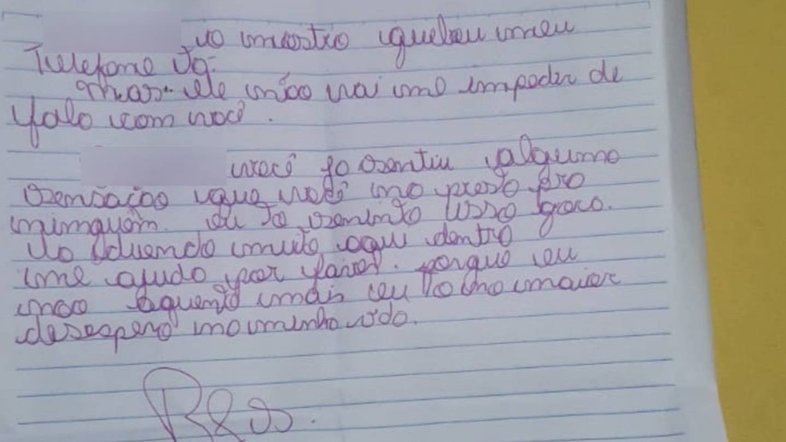 o monstro quebou meu
Telefone Já.
Mas ele não vai me impedir de
falo com você.
você já sentiu alguma
sensação que você não presta pro
ninguém. eu to sentindo isso agora.
to doendo muito aqui dentro
me ajudo por favor. porque eu
não aguento mais eu to no maior
desespero na minha vida.